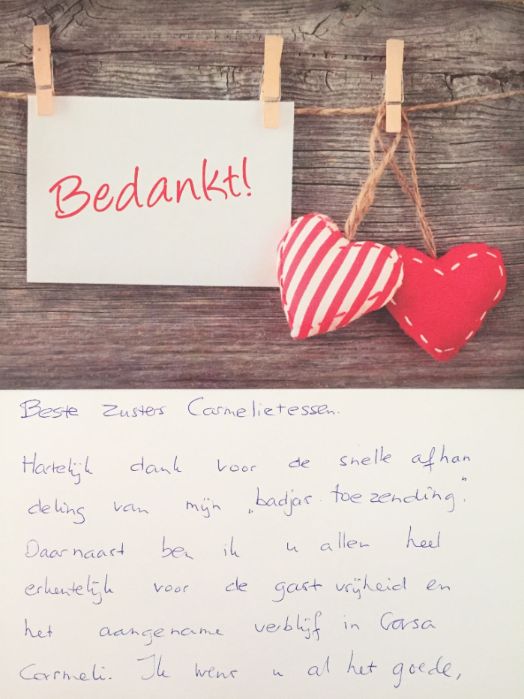 Bedankt!
Beste zusters Carmelietessen.
Hartelijk dank voor de snelle afhan
deling van mijn „badjas toezending".
Daarnaast ben ik u allen heel
erkentelijk voor de gastvrijheid en
het aangename verblijf in Carsa
Carmeli. Ik wens u al het goede,